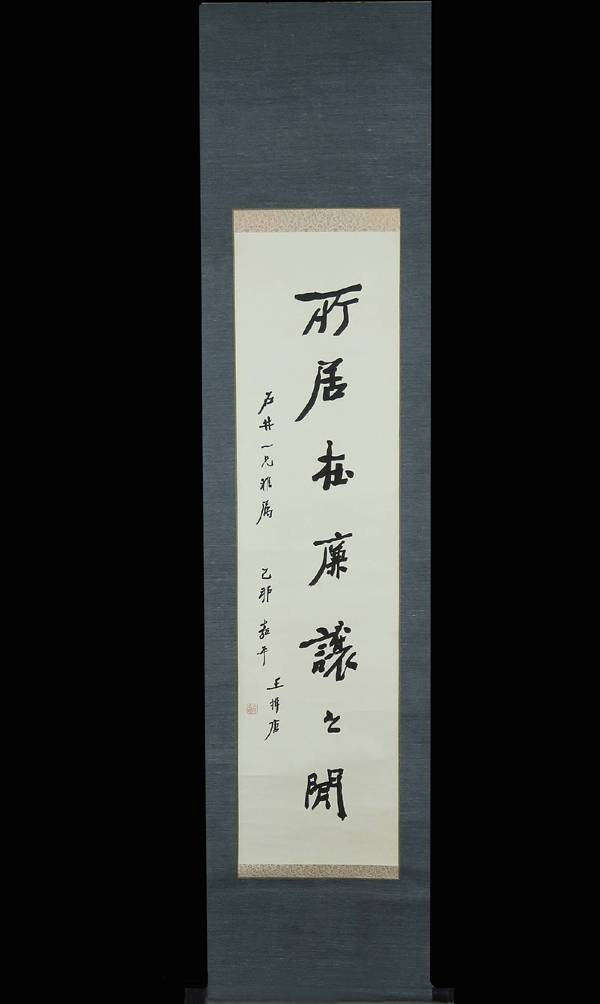 所居在廉讓之閒
石井一兄雅屬 乙卯嘉平 王揖唐